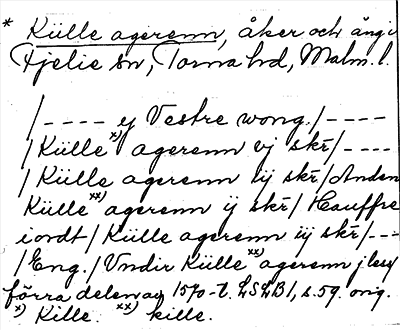 * Külle agerenn, åker och äng i
Fjelie sn, Torna hd, Malm. l.
/---- y Vestre wong./----
/Külle x) agerenn vj skr̄/----
/Külle agerenn iij skr̄/Anden
Külle xx) agerenn ij skr̄/Hauffre
iordt/Külle agerenn iij skr̄/---
/Eng./Vndir Külle xx) agerenn j less
förra delen av 1570-t. LSLB 1, s. 59. orig.
x) Kille. xx) kille.